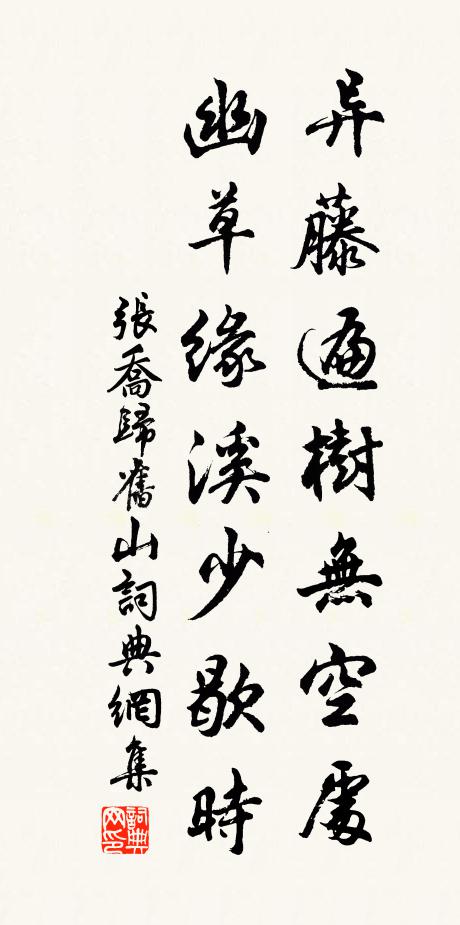 异藤遍樹無空處
幽草緣溪少歇時
張喬歸舊山詞典網集
詞典網印